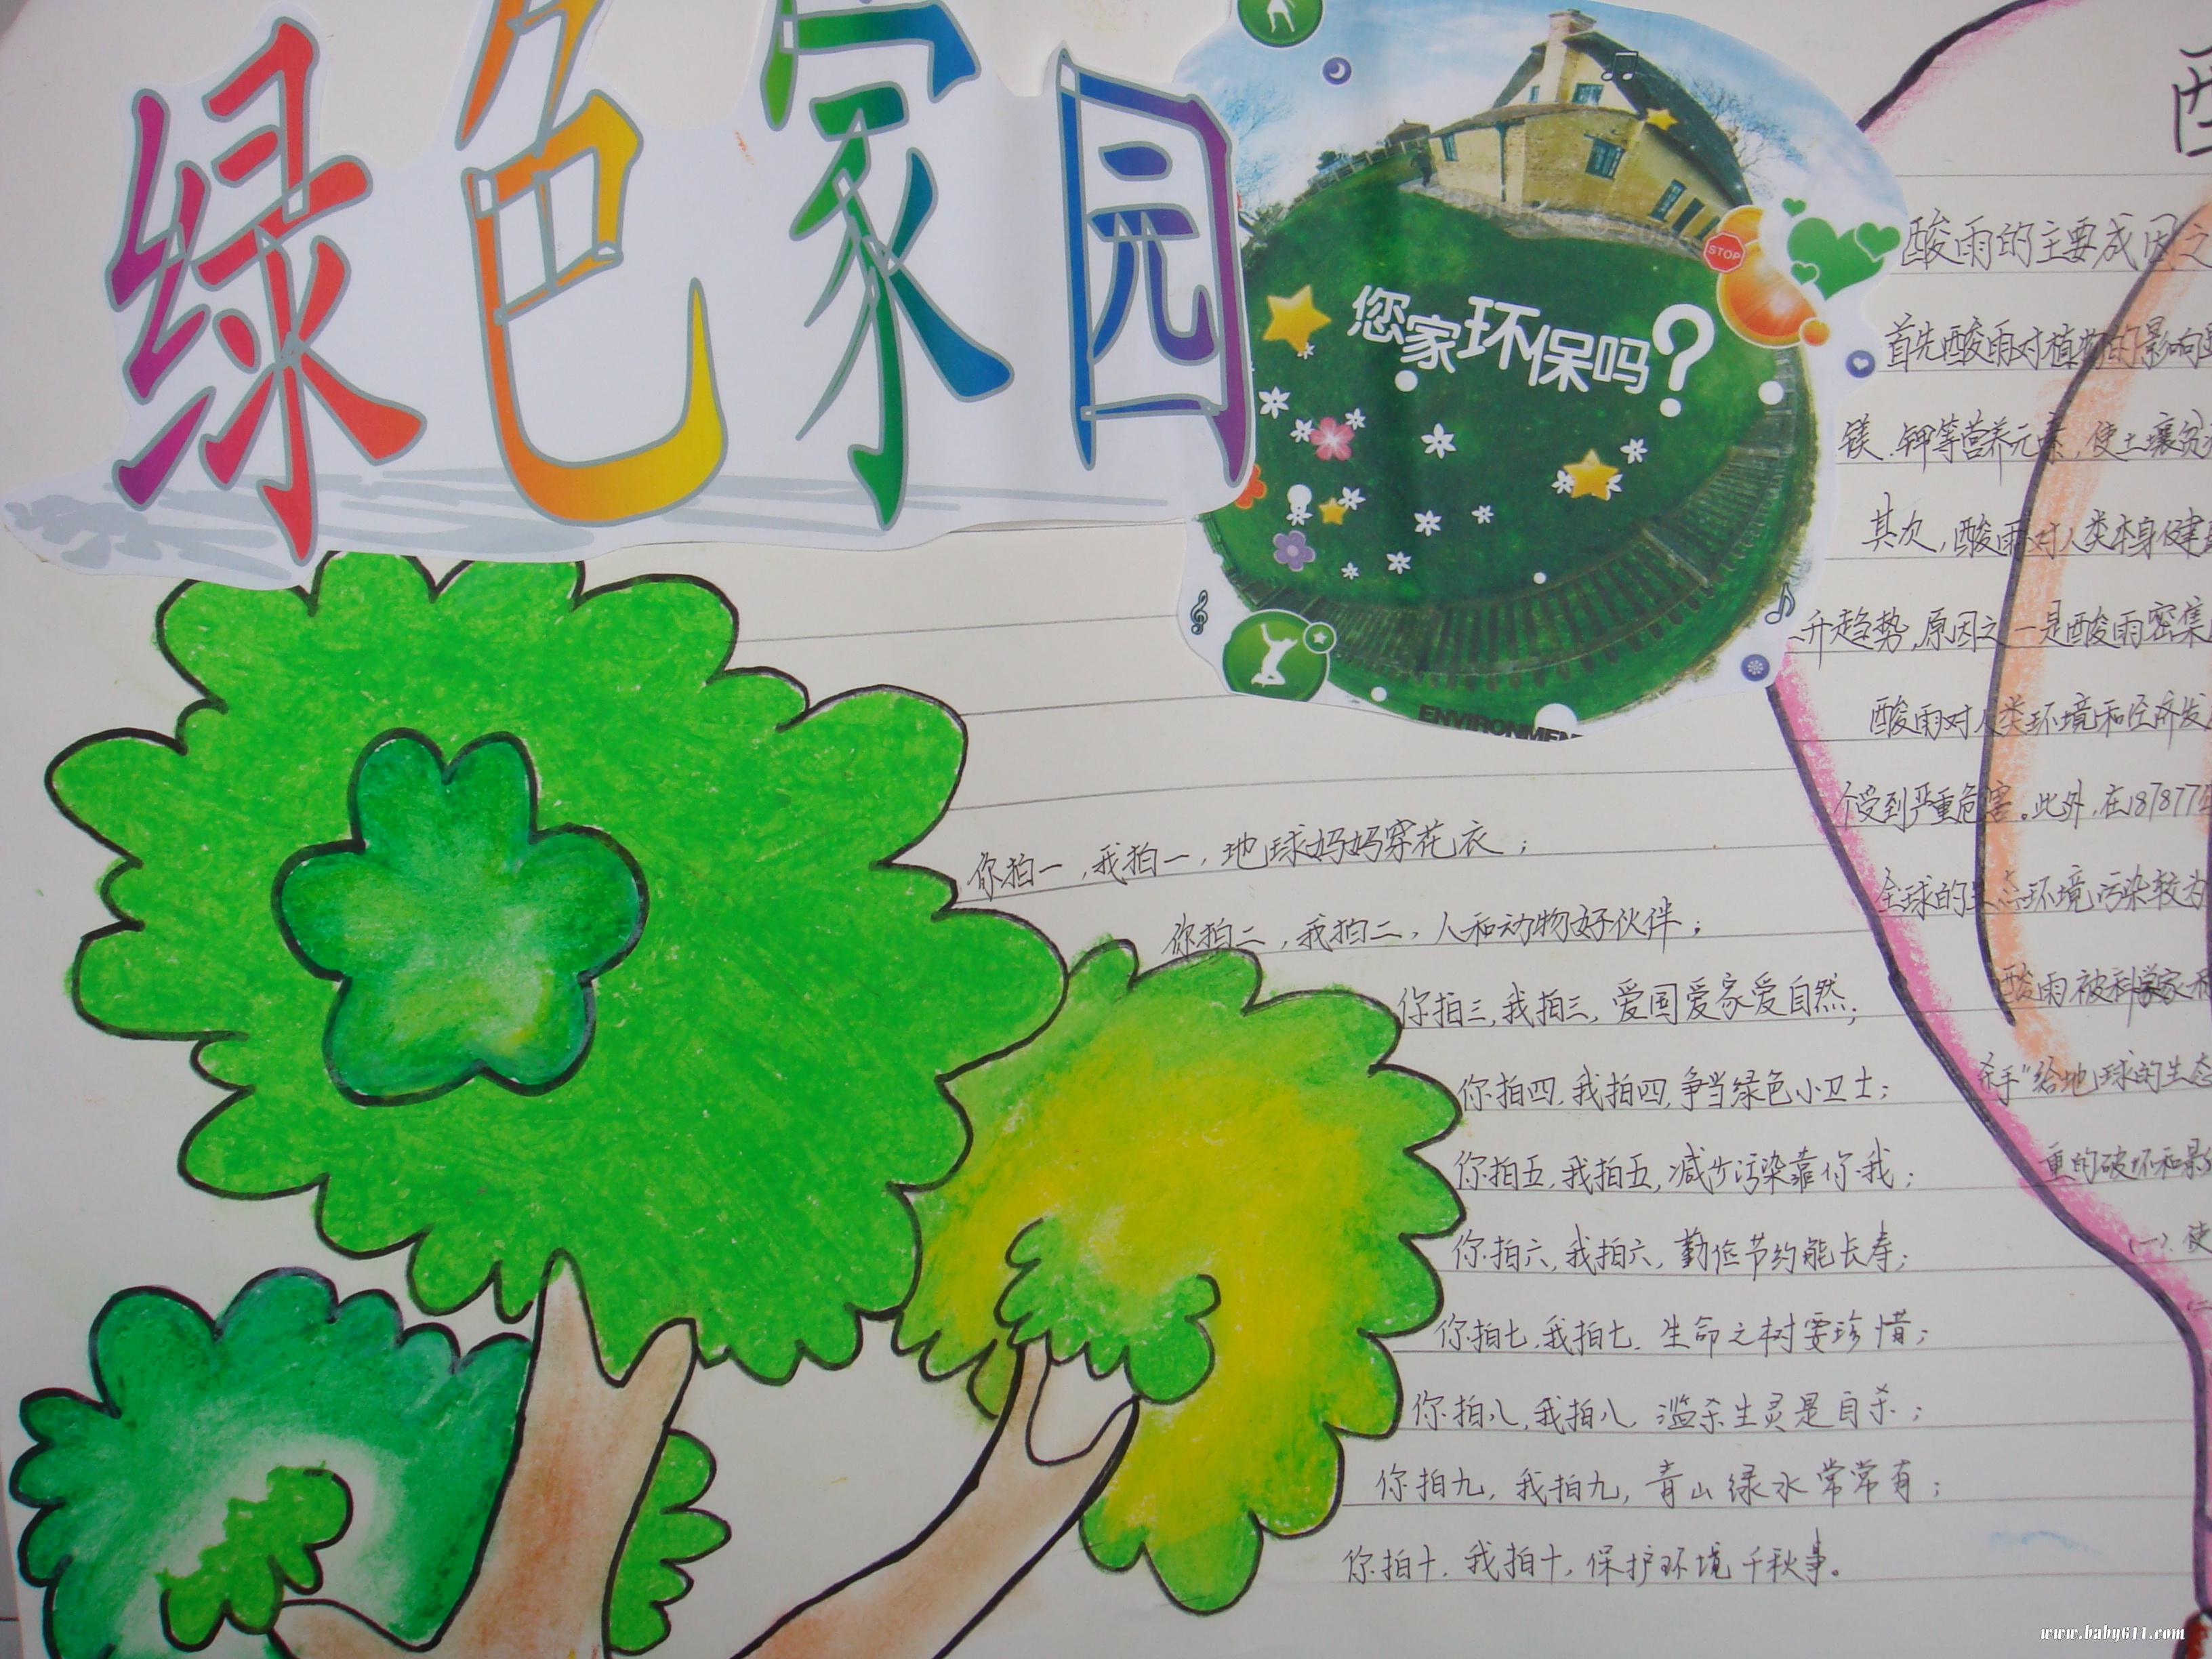 绿色家园
STOP
您家环保吗?
ENVIRONMEN
你拍一,我拍一,地球妈妈穿花衣;
你拍二,我拍二,人和动物好伙伴;
你拍三,我拍三,爱国爱家爱自然;
你拍四,我拍四,争当绿色小卫士;
你拍五,我拍五,减少污染靠你我;
你拍六,我拍六,勤俭节约能长寿;
你拍七,我拍七,生命之树要珍惜;
你拍八,我拍八,滥杀生灵是自杀;
你拍九,我拍九,青山绿水常常有;
你拍十,我拍十,保护环境千秋事。
酸雨的主要成因之
首先酸雨对植物的影响
镁、钾等营养元素,使土壤贫
其次,酸雨对人类本身健
升趋势,原因之一是酸雨密集
酸雨对人类环境和经济发
个受到严重危害。此外,在
全球的生态环境污染较为
酸雨被科学家
杀手"给地球的生态
重的破坏和影
(一)、使
www.baby611.com